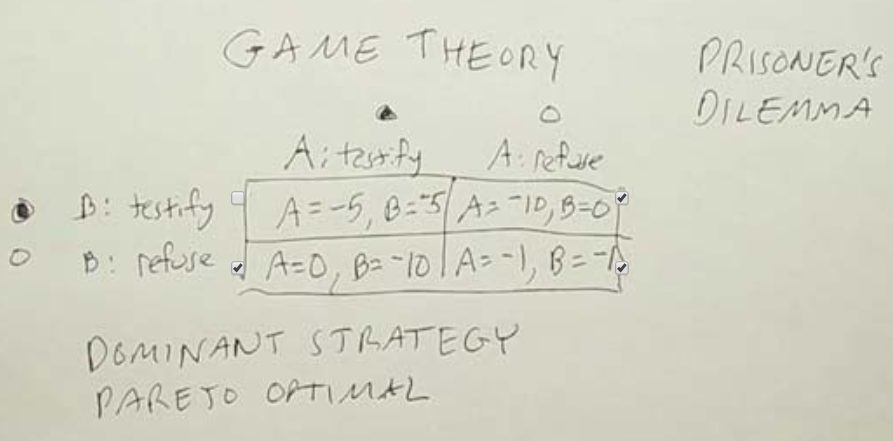 GAME THEORY
PRISONER'S
DILEMMA
A: testify A: refuse
B: testify A=-5, B=-5 A=-10, B=0
B: refuse A=0, B=-10 A=-1, B=-1
DOMINANT STRATEGY
PARETO OPTIMAL